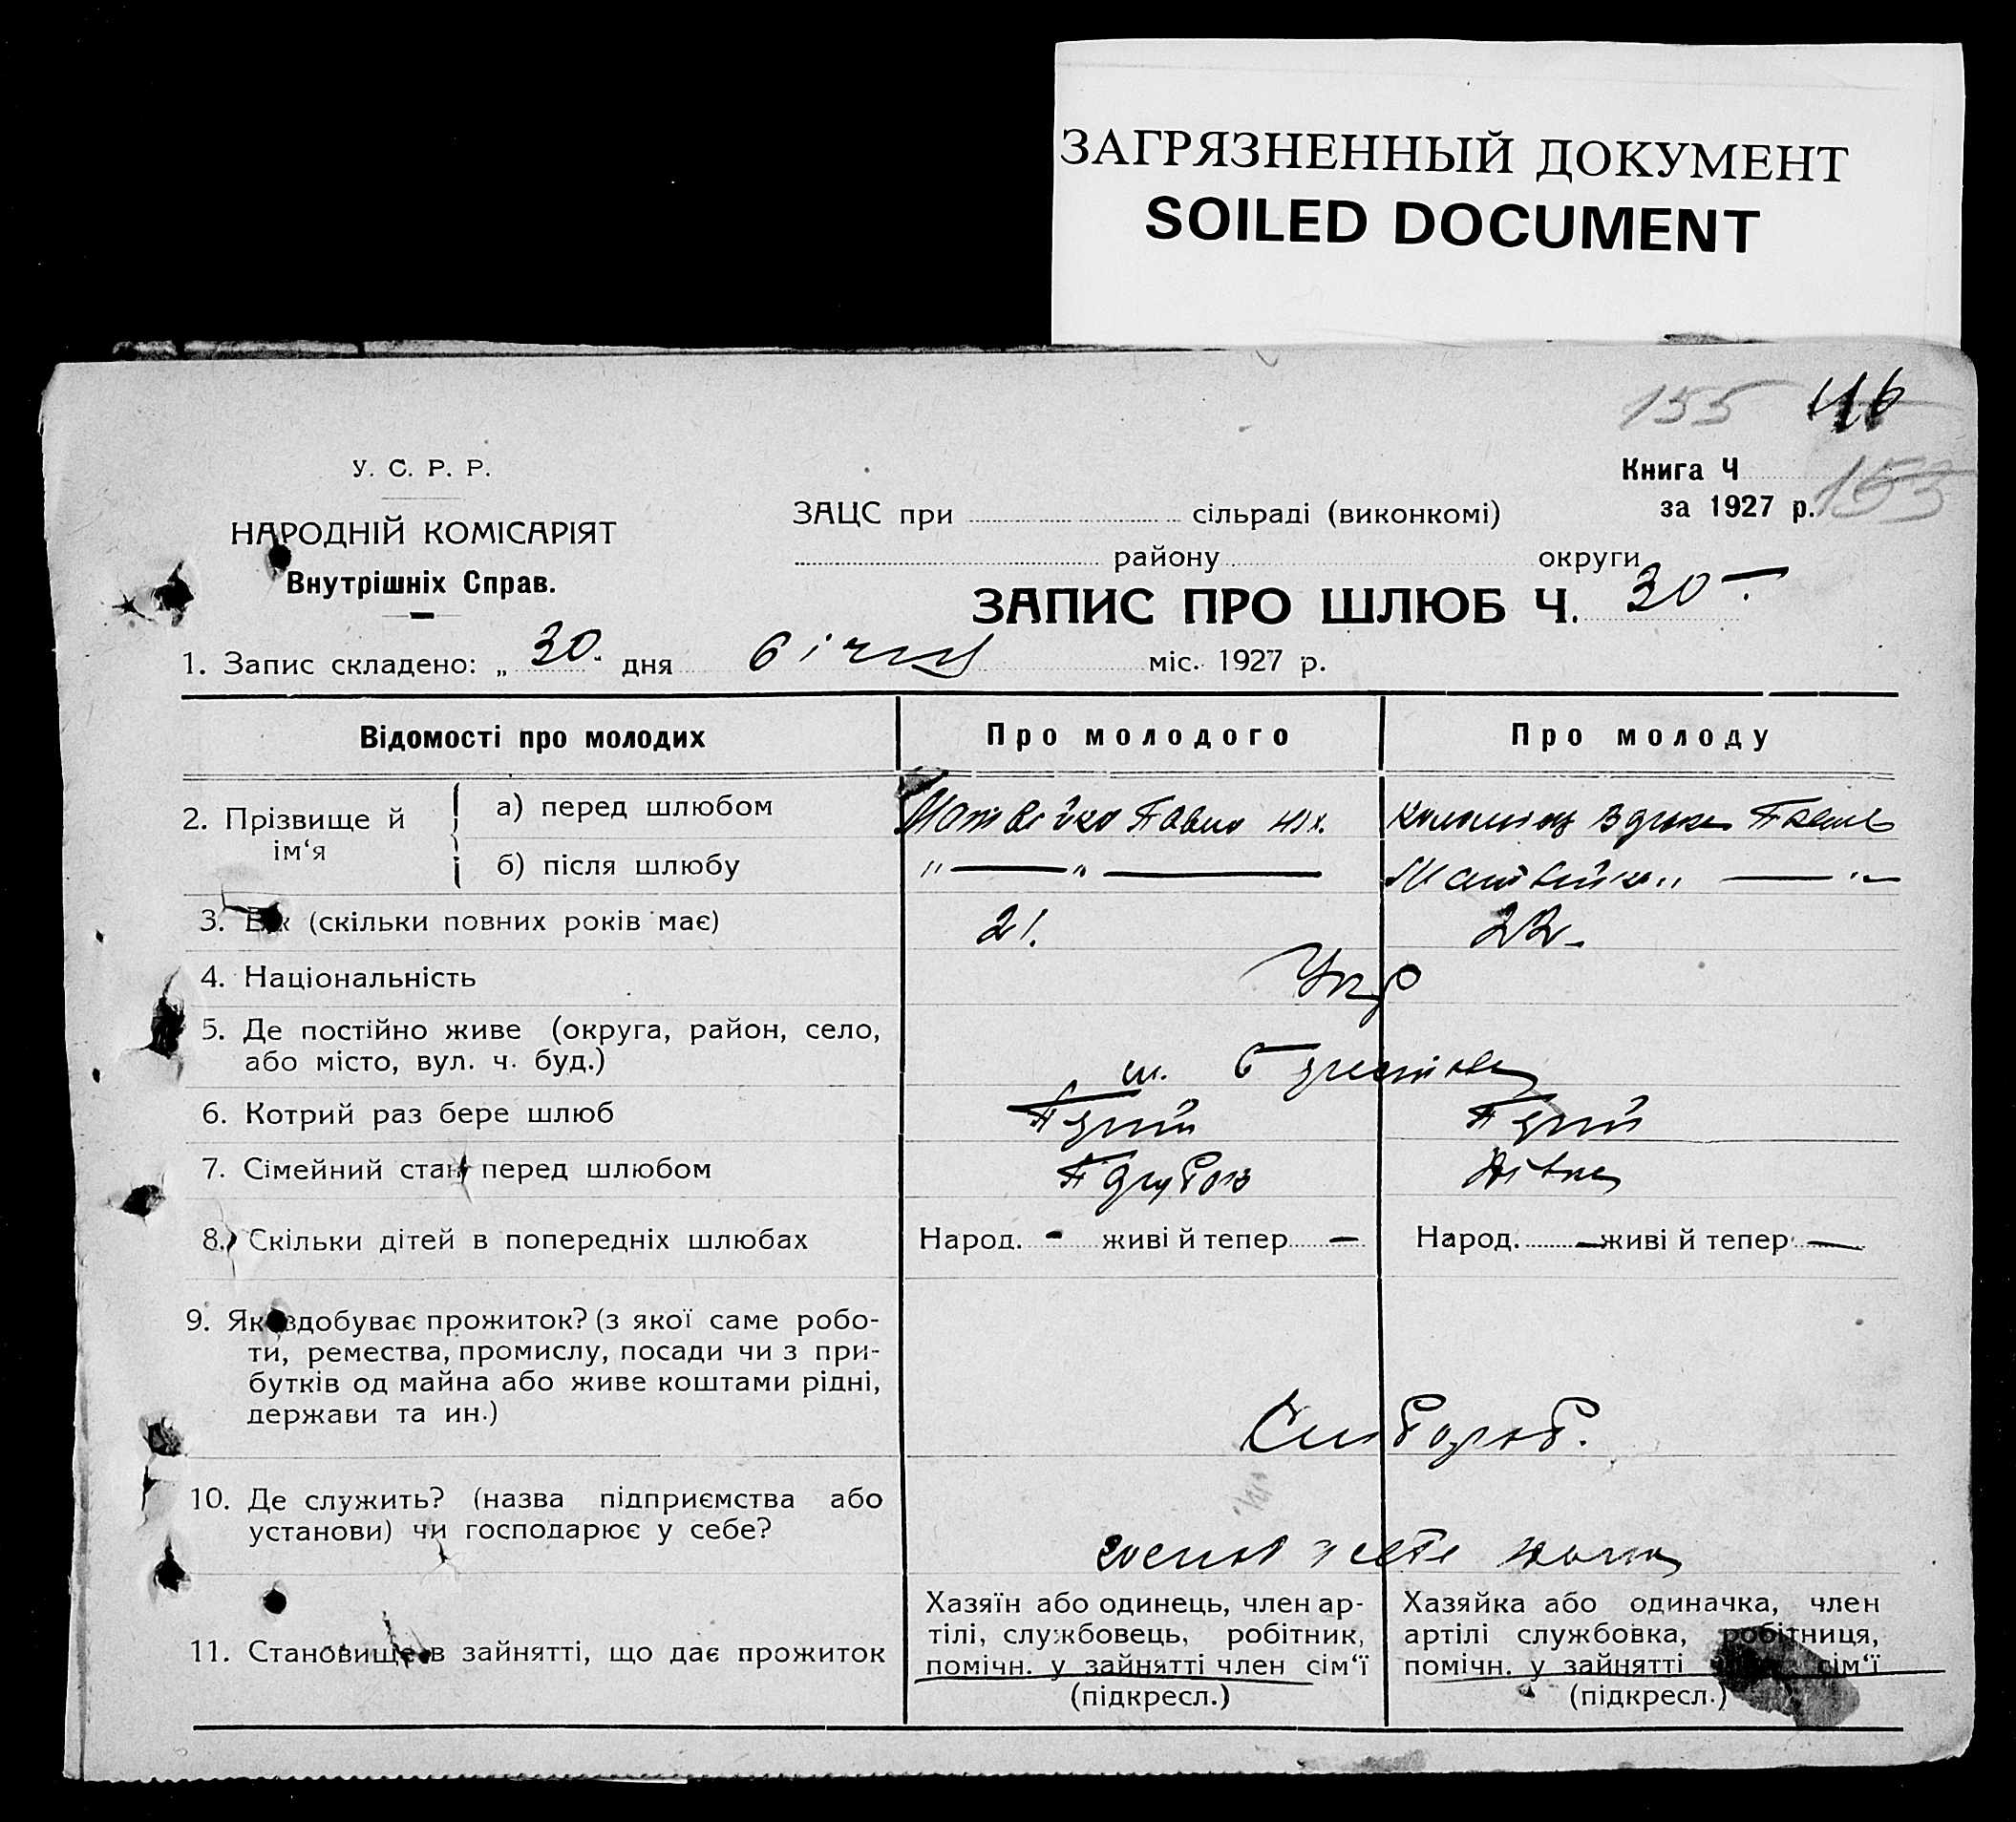 ЗАГРЯЗНЕННЫЙ ДОКУМЕНТ
SOILED DOCUMENT
155 116
У. С. Р. Р.
Книга Ч
153
НАРОДНІЙ КОМІСАРІЯТ
Внутрішніх Справ.
ЗАЦС при сільраді (виконкомі)
за 1927 р.
району округи
ЗАПИС ПРО ШЛЮБ Ч. 30
1. Запис складено: „ 30 дня січня міс. 1927 р.
Відомості про молодих Про молодого Про молоду
2. Прізвище й ім‘я
а) перед шлюбом Матвійко Павло Коломієць
б) після шлюбу " — " — Матвійко " — " —
3. Вік (скільки повних років має) 21. 22
4. Національність Укр
5. Де постійно живе (округа, район, село,
або місто, вул. ч. буд.)
6. Котрий раз бере шлюб Перший Перший
7. Сімейний стан перед шлюбом Парубок Дівка
8. Скільки дітей в попередніх шлюбах Народ. - живі й тепер — Народ. — живі й тепер —
9. Як здобуває прожиток? (з якої саме робо-
ти, ремества, промислу, посади чи з при-
бутків од майна або живе коштами рідні,
держави та ин.)
10. Де служить? (назва підприємства або
установи) чи господарює у себе?
11. Становище в зайнятті, що дає прожиток
Хазяїн або одинець, член ар-
тілі, службовець, робітник,
помічн. у зайнятті член сім‘ї
(підкресл.)
Хазяйка або одиначка, член
артілі службовка, робітниця,
помічн. у зайнятті сім‘ї
(підкресл.)